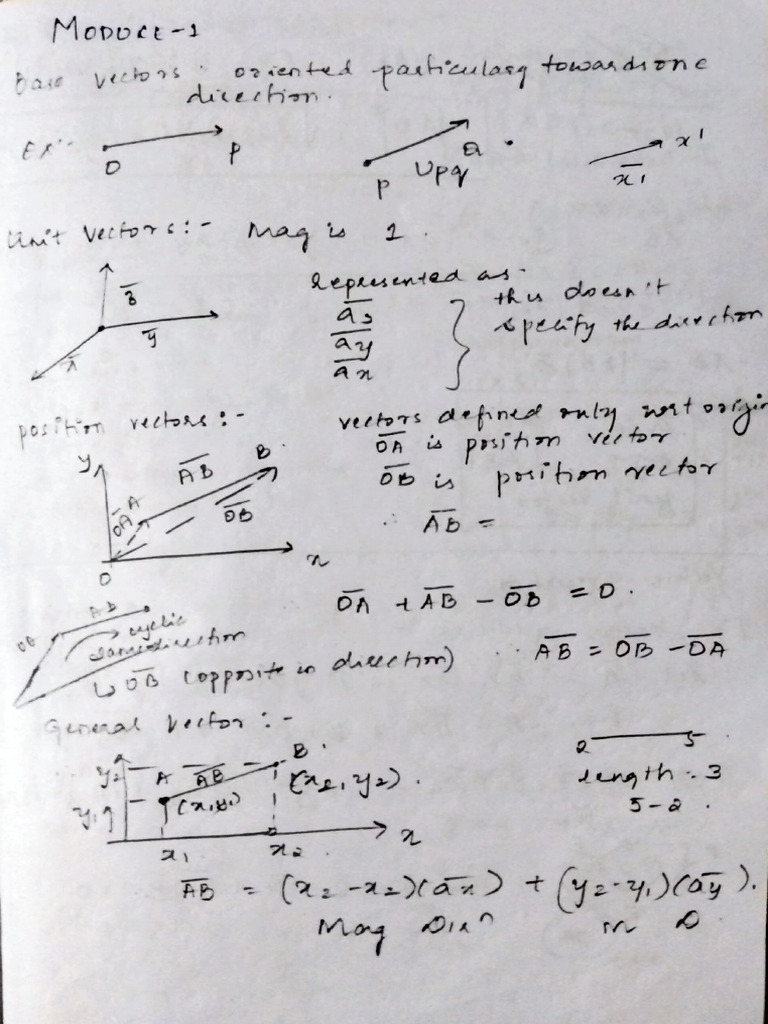 MODULE-1
Base vectors: oriented particularly towards one
direction.
Ex:- O P P Upq Q x̄1 x1
Unit Vectors:- Mag is 1.
z̄ ȳ x̄
Represented as
āz
āy
āx
this doesn't
specify the direction
position vectors:- vectors defined only wrt origin
O̅A̅ is position vector
O̅B̅ is position vector
y A̅B̅ B A O̅A̅ O̅B̅ O x
∴ A̅B̅ =
O̅A̅ + A̅B̅ - O̅B̅ = 0.
A̅B̅ cyclic
same direction
↳ O̅B̅ (opposite in direction) ∴ A̅B̅ = O̅B̅ - O̅A̅
General vector:-
y2 A A̅B̅ B
(x1y1) (x2, y2).
y1
x1 x2 x
2 5
length: 3
5-2.
A̅B̅ = (x2-x2)(āx) + (y2-y1)(āy).
Mag Dirn m D